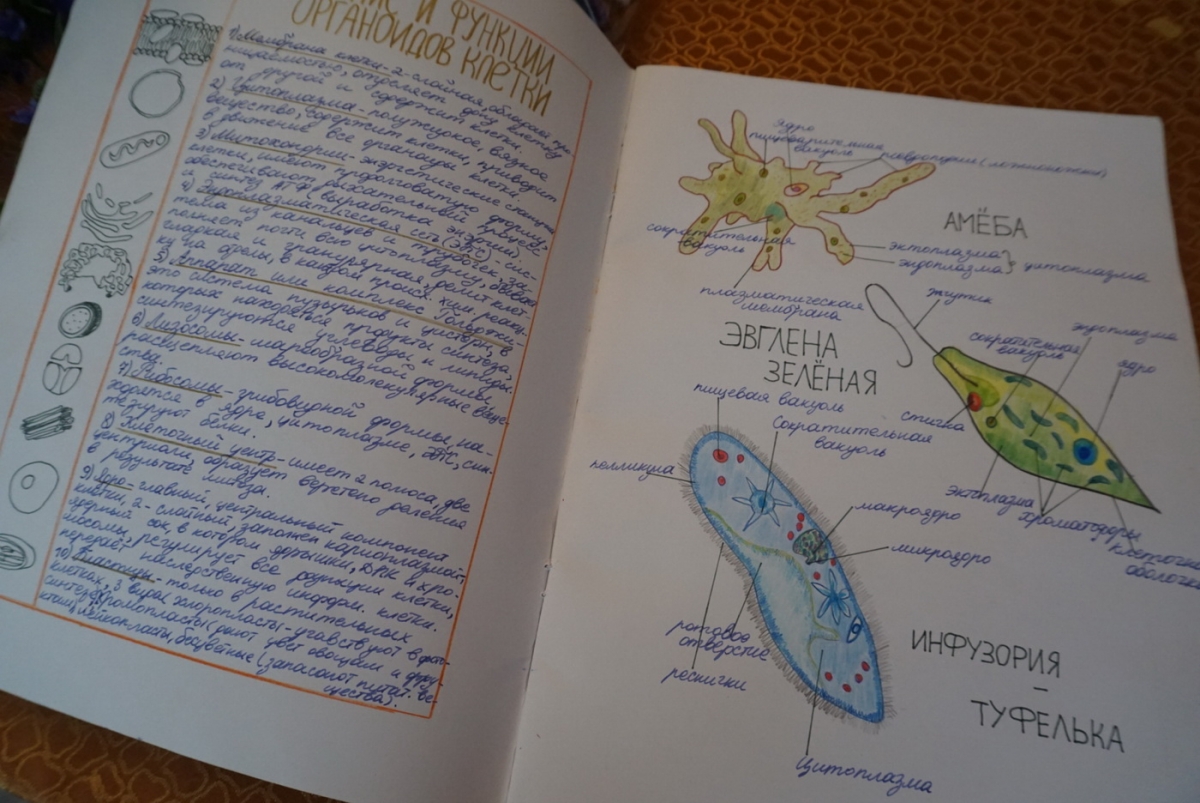 И ФУНКЦИИ
ОРГАНОИДОВ КЛЕТКИ
1) Мембрана клетки - 2-слойная, обладает
ницаемостью, отделяет одну клетку
от другой и
2) Цитоплазма - полужидкое, вязкое
вещество, содержит клетки, приводит
в движение все органоиды клетки.
3) Митохондрии - энергетические станции
клетки, имеют продолговатую форму,
обеспечивают дыхательный процесс
и синтез АТФ (выработка энергии)
4) Эндоплазматическая сеть (ЭПС) - сис-
тема из канальцев и трубочек, за-
полняет почти всю цитоплазму, бывает
гладкая и гранулярная, делит клет-
ку на отделы, в каждом происх. хим. реакц.
5) Аппарат или комплекс Гольджи -
это система пузырьков и цистерн, в
которых находятся продукты синтеза,
синтезируются углеводы и липиды.
6) Лизосомы - шарообразной формы,
расщепляют высокомолекулярные веще-
ства.
7) Рибосомы - грибовидной формы, на-
ходятся в ядре, цитоплазме, ЭПС, син-
тезируют белки.
8) Клеточный центр - имеет 2 полюса, две
центриоли, образует веретено деления
в результате митоза.
9) Ядро - главный, центральный компонент
клетки, 2-слойный, заполнен кариоплазмой,
ядерный сок, в котором ядрышки, ДНК и хро-
мосомы, регулирует все функции клетки,
передаёт наследственную информ. клетки.
10) Пластиды - только в растительных
клетках, 3 вида: хлоропласты - учавствуют в фото-
синтезе, хромопласты (дают цвет овощам и фрук-
там), лейкопласты, бесцветные (запасают питат. ве-
щества).
ядро
пищеварительная
вакуоль
псевдоподии (ложноножки)
АМЁБА
сократительная
вакуоль
эктоплазма
эндоплазма
цитоплазма
плазматическая
мембрана
жгутик
ЭВГЛЕНА
ЗЕЛЁНАЯ
сократительная
вакуоль
эндоплазма
ядро
стигма
эктоплазма
хроматофоры
клеточная
оболочка
пищевая вакуоль
Сократительная
вакуоль
пелликула
макроядро
микроядро
ротовое
отверстие
реснички
ИНФУЗОРИЯ
-
ТУФЕЛЬКА
Цитоплазма